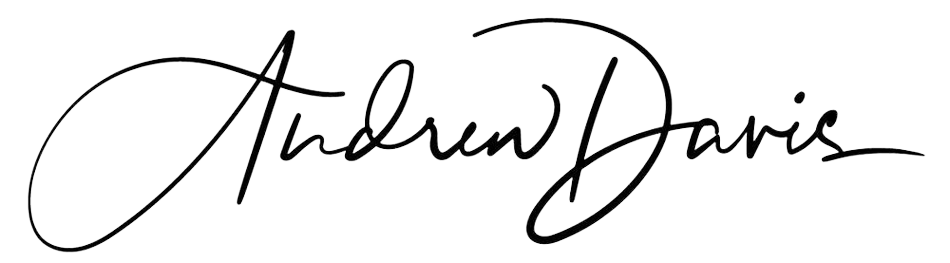 Andrew Davis